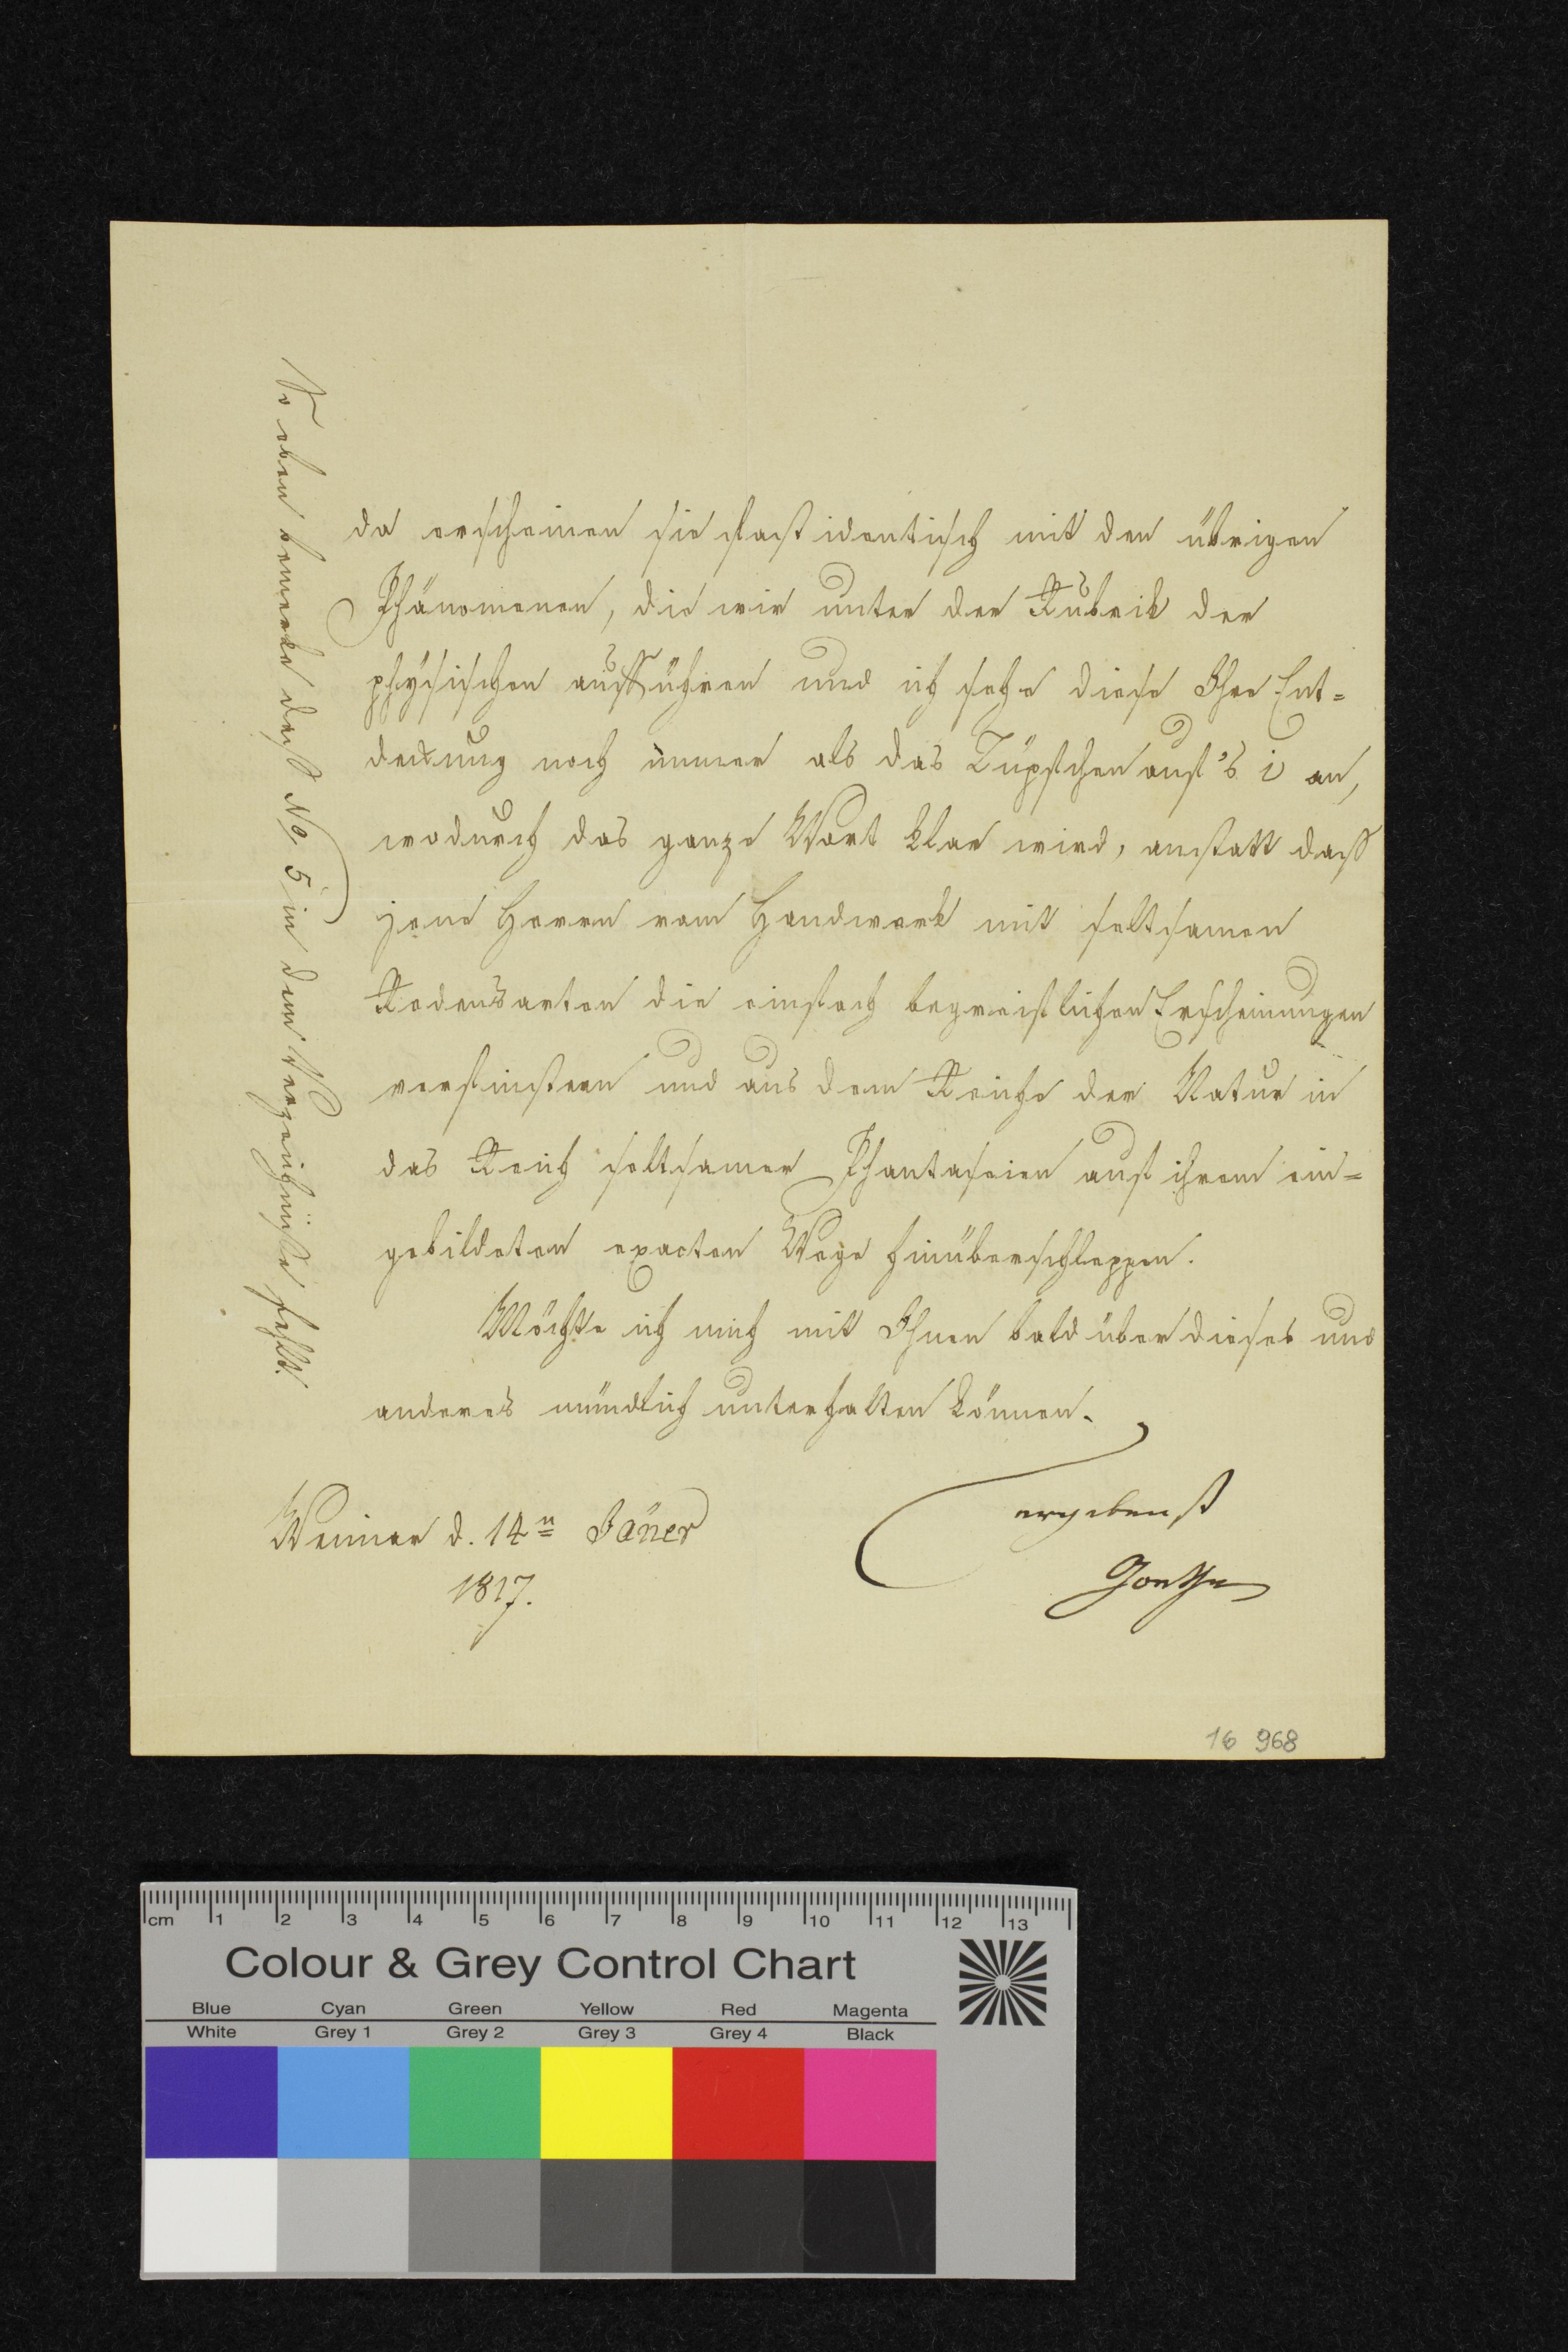 da erscheinen sie fast identisch mit den übrigen
Phänomenen, die wir unter der Rubrik der
physischen aufführen und ich sehe diese Ihre Ent=
deckung noch immer als das Tüpfchen auf's i an,
wodurch das ganze Wort klar wird, anstatt daß
jene Herrn vom Handwerk mit seltsamen
Redensarten die einfach begreiflichen Erscheinungen
verfinstern und aus dem Reiche der Natur in
das Reich seltsamer Phantaseien auf ihrem ein=
gebildeten exacten Wege hinüberschleppen.
Möchte ich mich mit Ihnen bald über dieses und
anderes mündlich unterhalten können.
ergebenst
Goethe
Weimar d. 14n Jäner
1817.
So eben bemerke daß No. 5 in dem Verzeichniße fehlt.
16 968
cm 1 2 3 4 5 6 7 8 9 10 11 12 13
Colour & Grey Control Chart
Blue Cyan Green Yellow Red Magenta
White Grey 1 Grey 2 Grey 3 Grey 4 Black